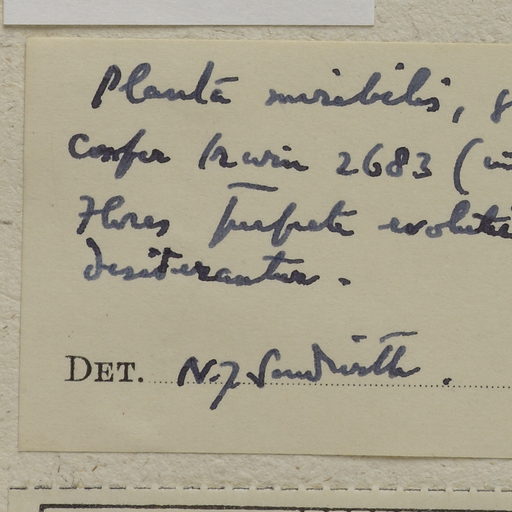 Planta mirabilis, g
Confer Irwin 2683 (in
Flores perfecte evoluti
desiderantur.
DET. N.Y. Sandwith.